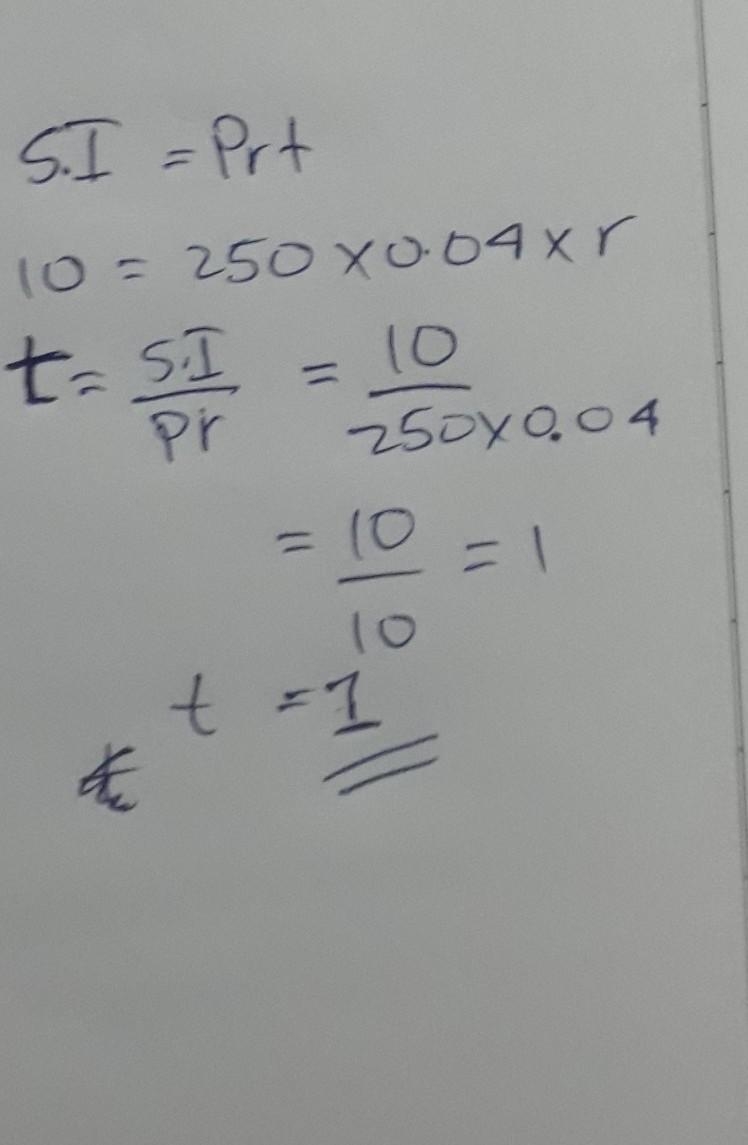 S.I = Prt
10 = 250 x 0.04 x r
t = S.I/Pr = 10/250x0.04
= 10/10 = 1
t = 1